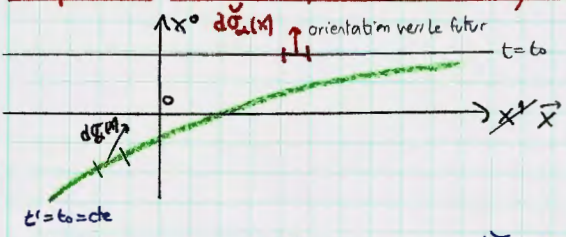 x⁰
dσ̌_μ(x) orientation vers le futur
t = t₀
0
x⃗
dσ_μ(x)
t' = t₀ = cte